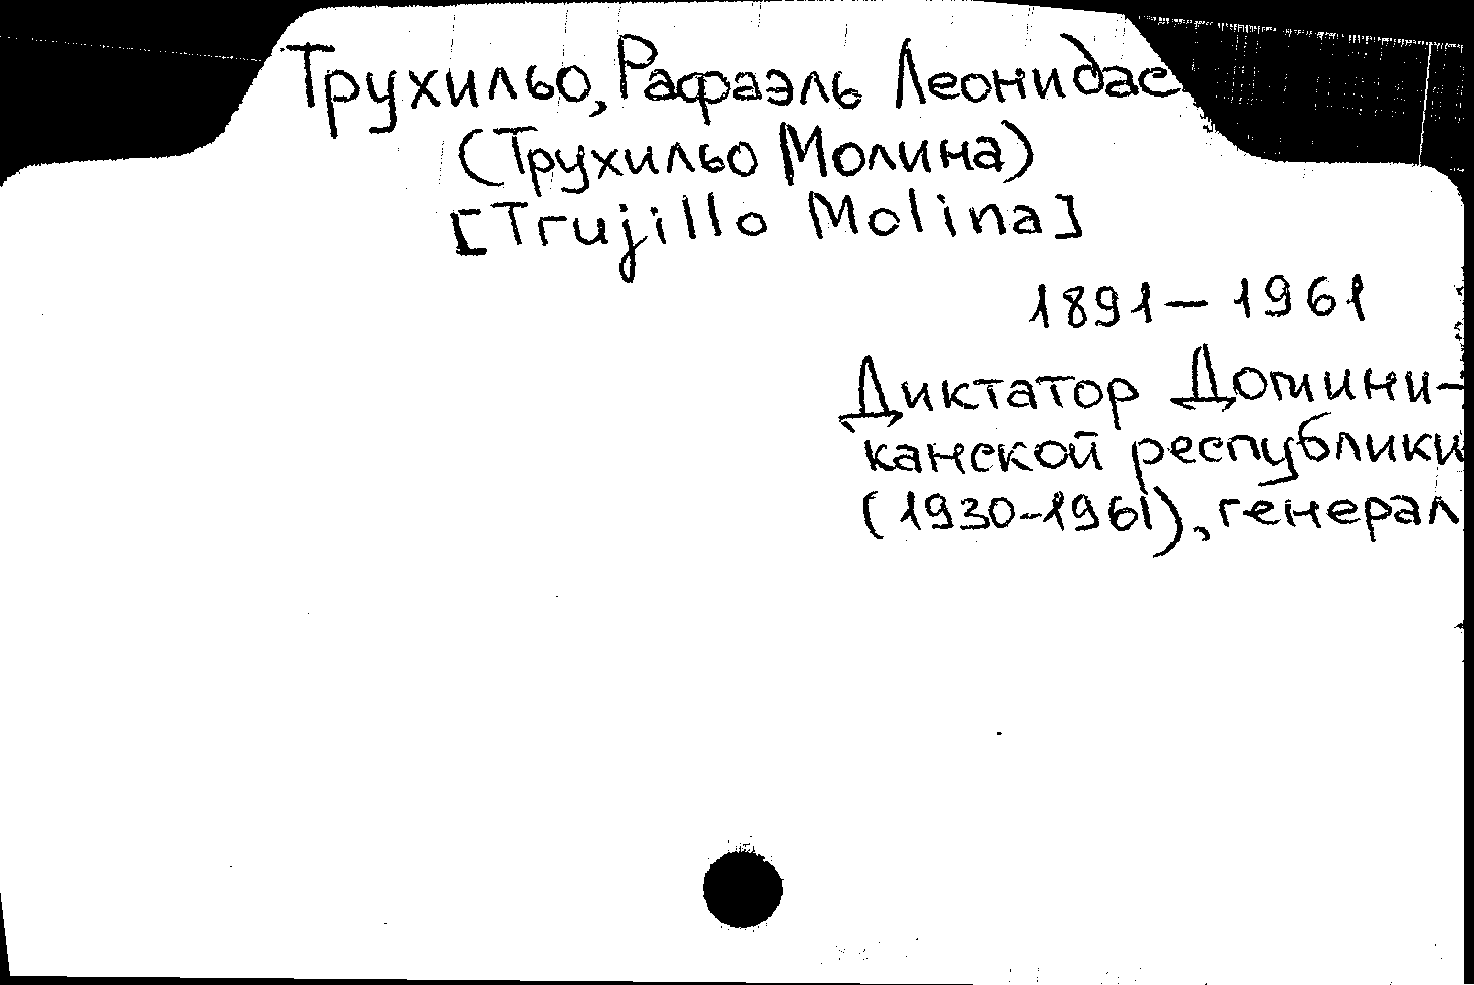 Трухильо, Рафаэль Леонидас
(Трухильо Молина)
[Trujillo Molina]
1891 – 1961
Диктатор Домини-
канской республики
(1930-1961), генерал